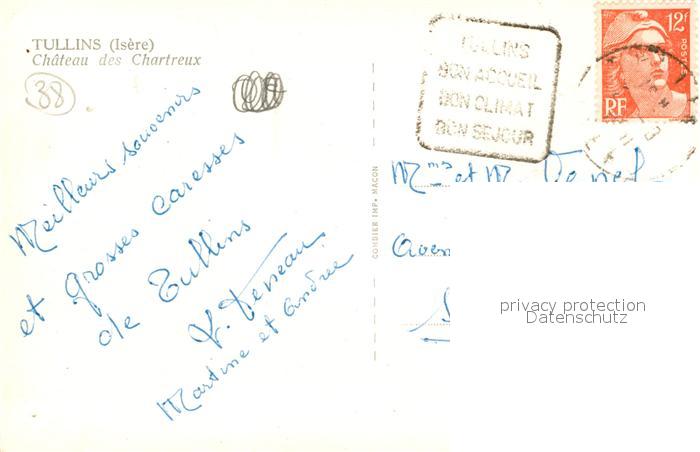 TULLINS (Isère)
Château des Chartreux
38
Meilleurs souvenirs
et grosses caresses
de Tullins
Martine et Andrée
COMBIER IMP. MACON
TULLINS
BON ACCUEIL
BON CLIMAT
BON SEJOUR
12F
POSTES
RF
Mme et M.
Aven
privacy protection
Datenschutz